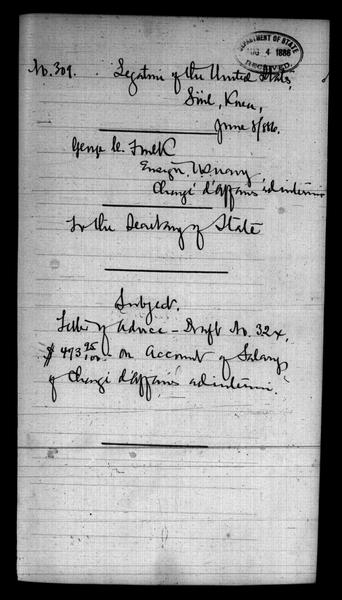 DEPARTMENT OF STATE
AUG 4 1886
RECEIVED
No. 309. Legation of the United States,
Söul, Korea,
June 8/886.
George C. Foulk
Ensign, U.S. Navy
Chargé d'Affaires ad interim
To the Secretary of State
Subject.
Letter of advice - Draft No. 32
$ 493 95/100 - on Account of Salary
of Chargé d'Affaires ad interim.